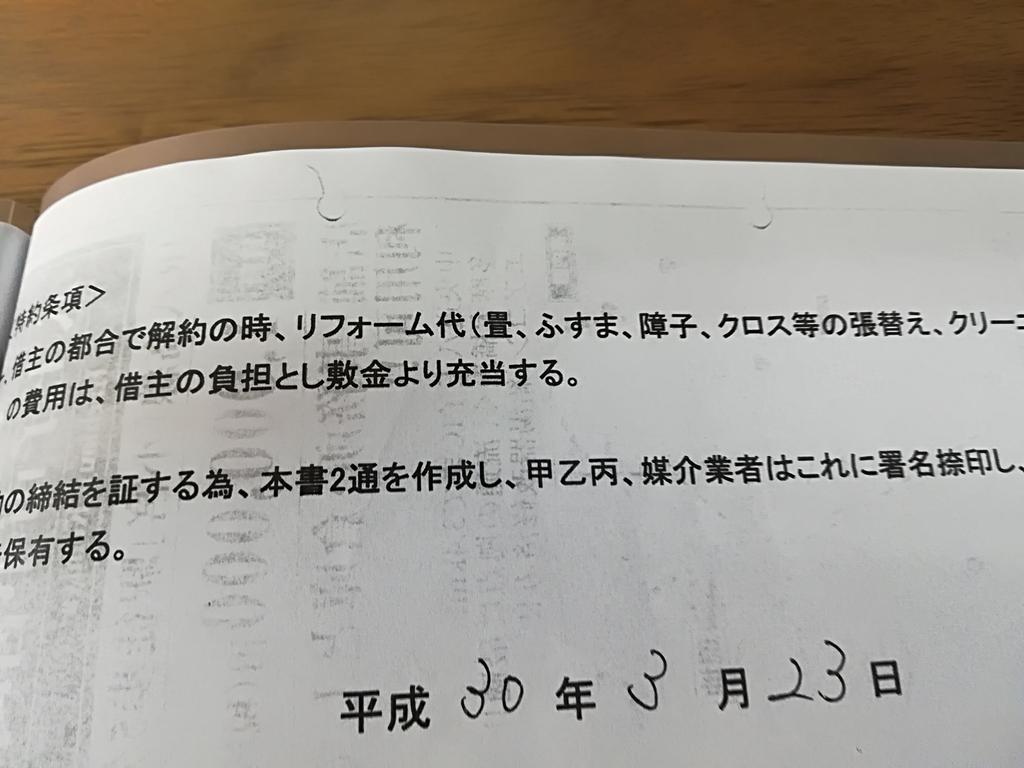 特約条項＞
借主の都合で解約の時、リフォーム代（畳、ふすま、障子、クロス等の張替え、クリー
の費用は、借主の負担とし敷金より充当する。
の締結を証する為、本書2通を作成し、甲乙丙、媒介業者はこれに署名捺印し、
保有する。
平成 30 年 3 月 23 日